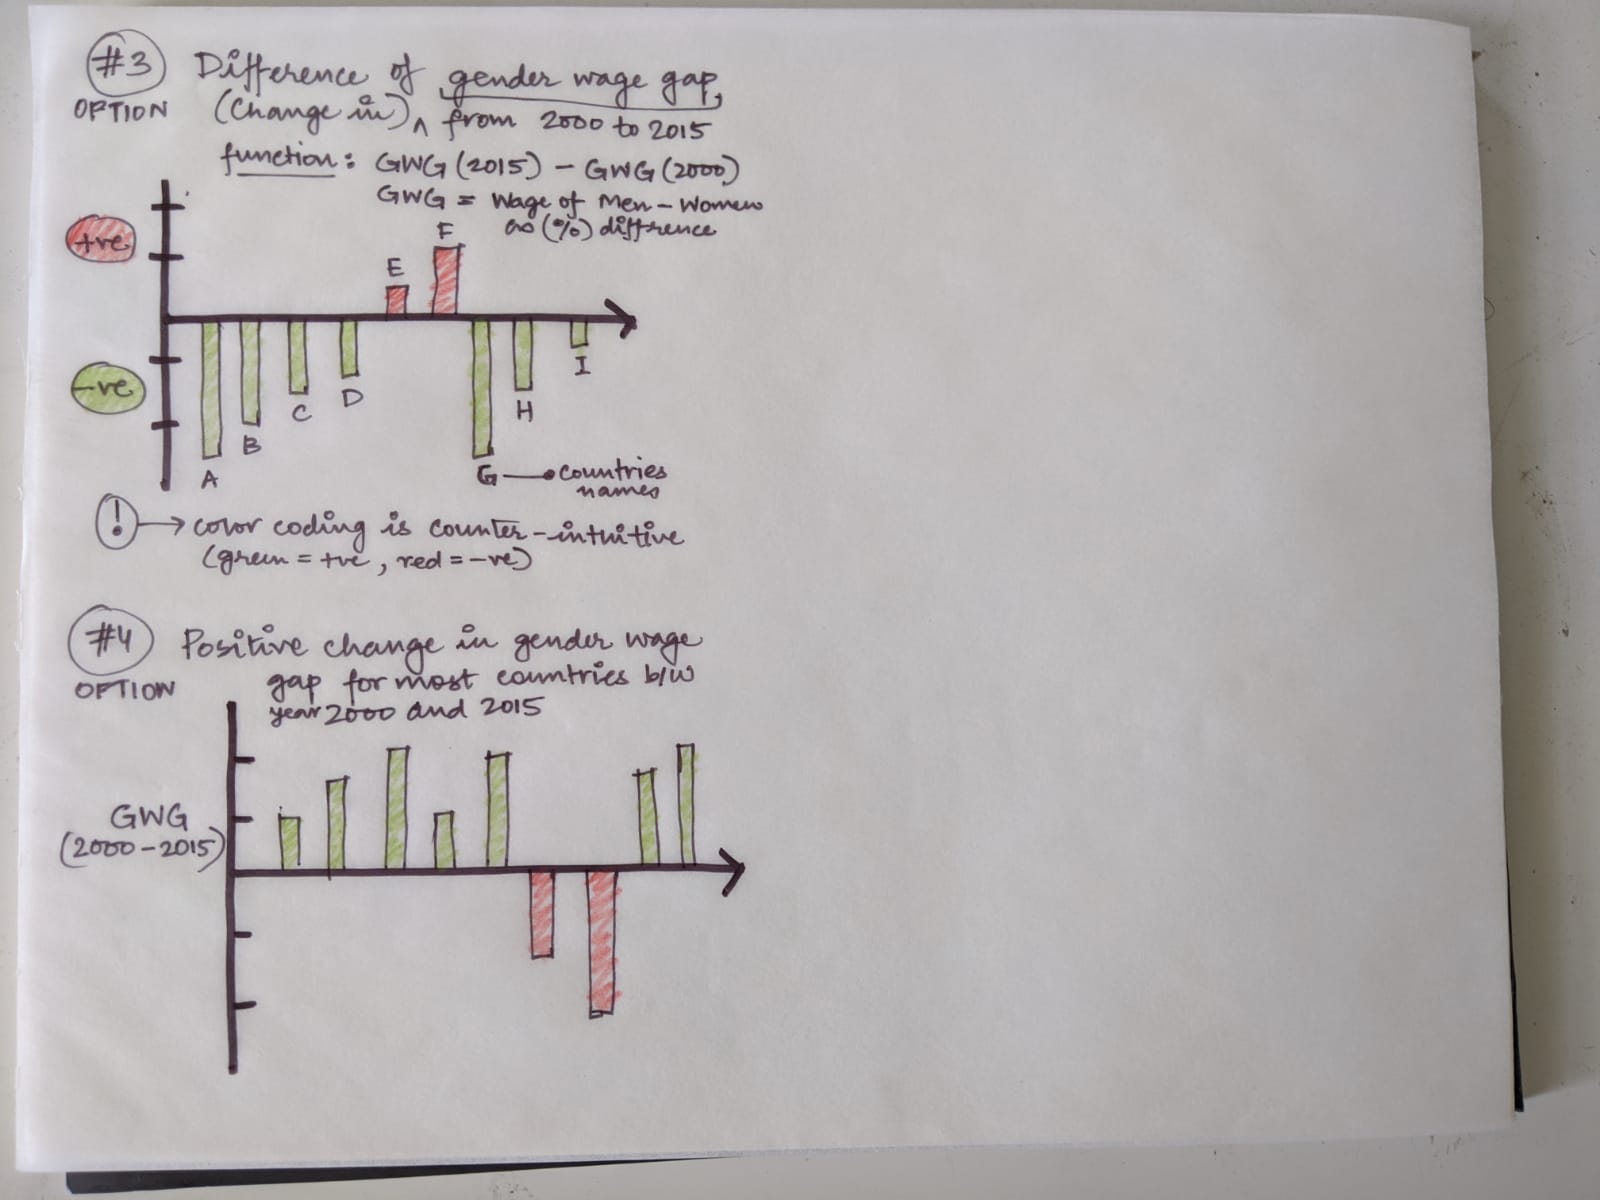 #3 Difference of gender wage gap,
OPTION (Change in) ^ from 2000 to 2015
function: GWG (2015) - GWG (2000)
GWG = Wage of Men - Women
as (%) difference
+ve
E
F
-ve
A
B
C
D
G → Countries
names
H
I
! → color coding is counter-intuitive
(green = +ve, red = -ve)
#4 Positive change in gender wage
OPTION gap for most countries b/w
year 2000 and 2015
GWG
(2000-2015)